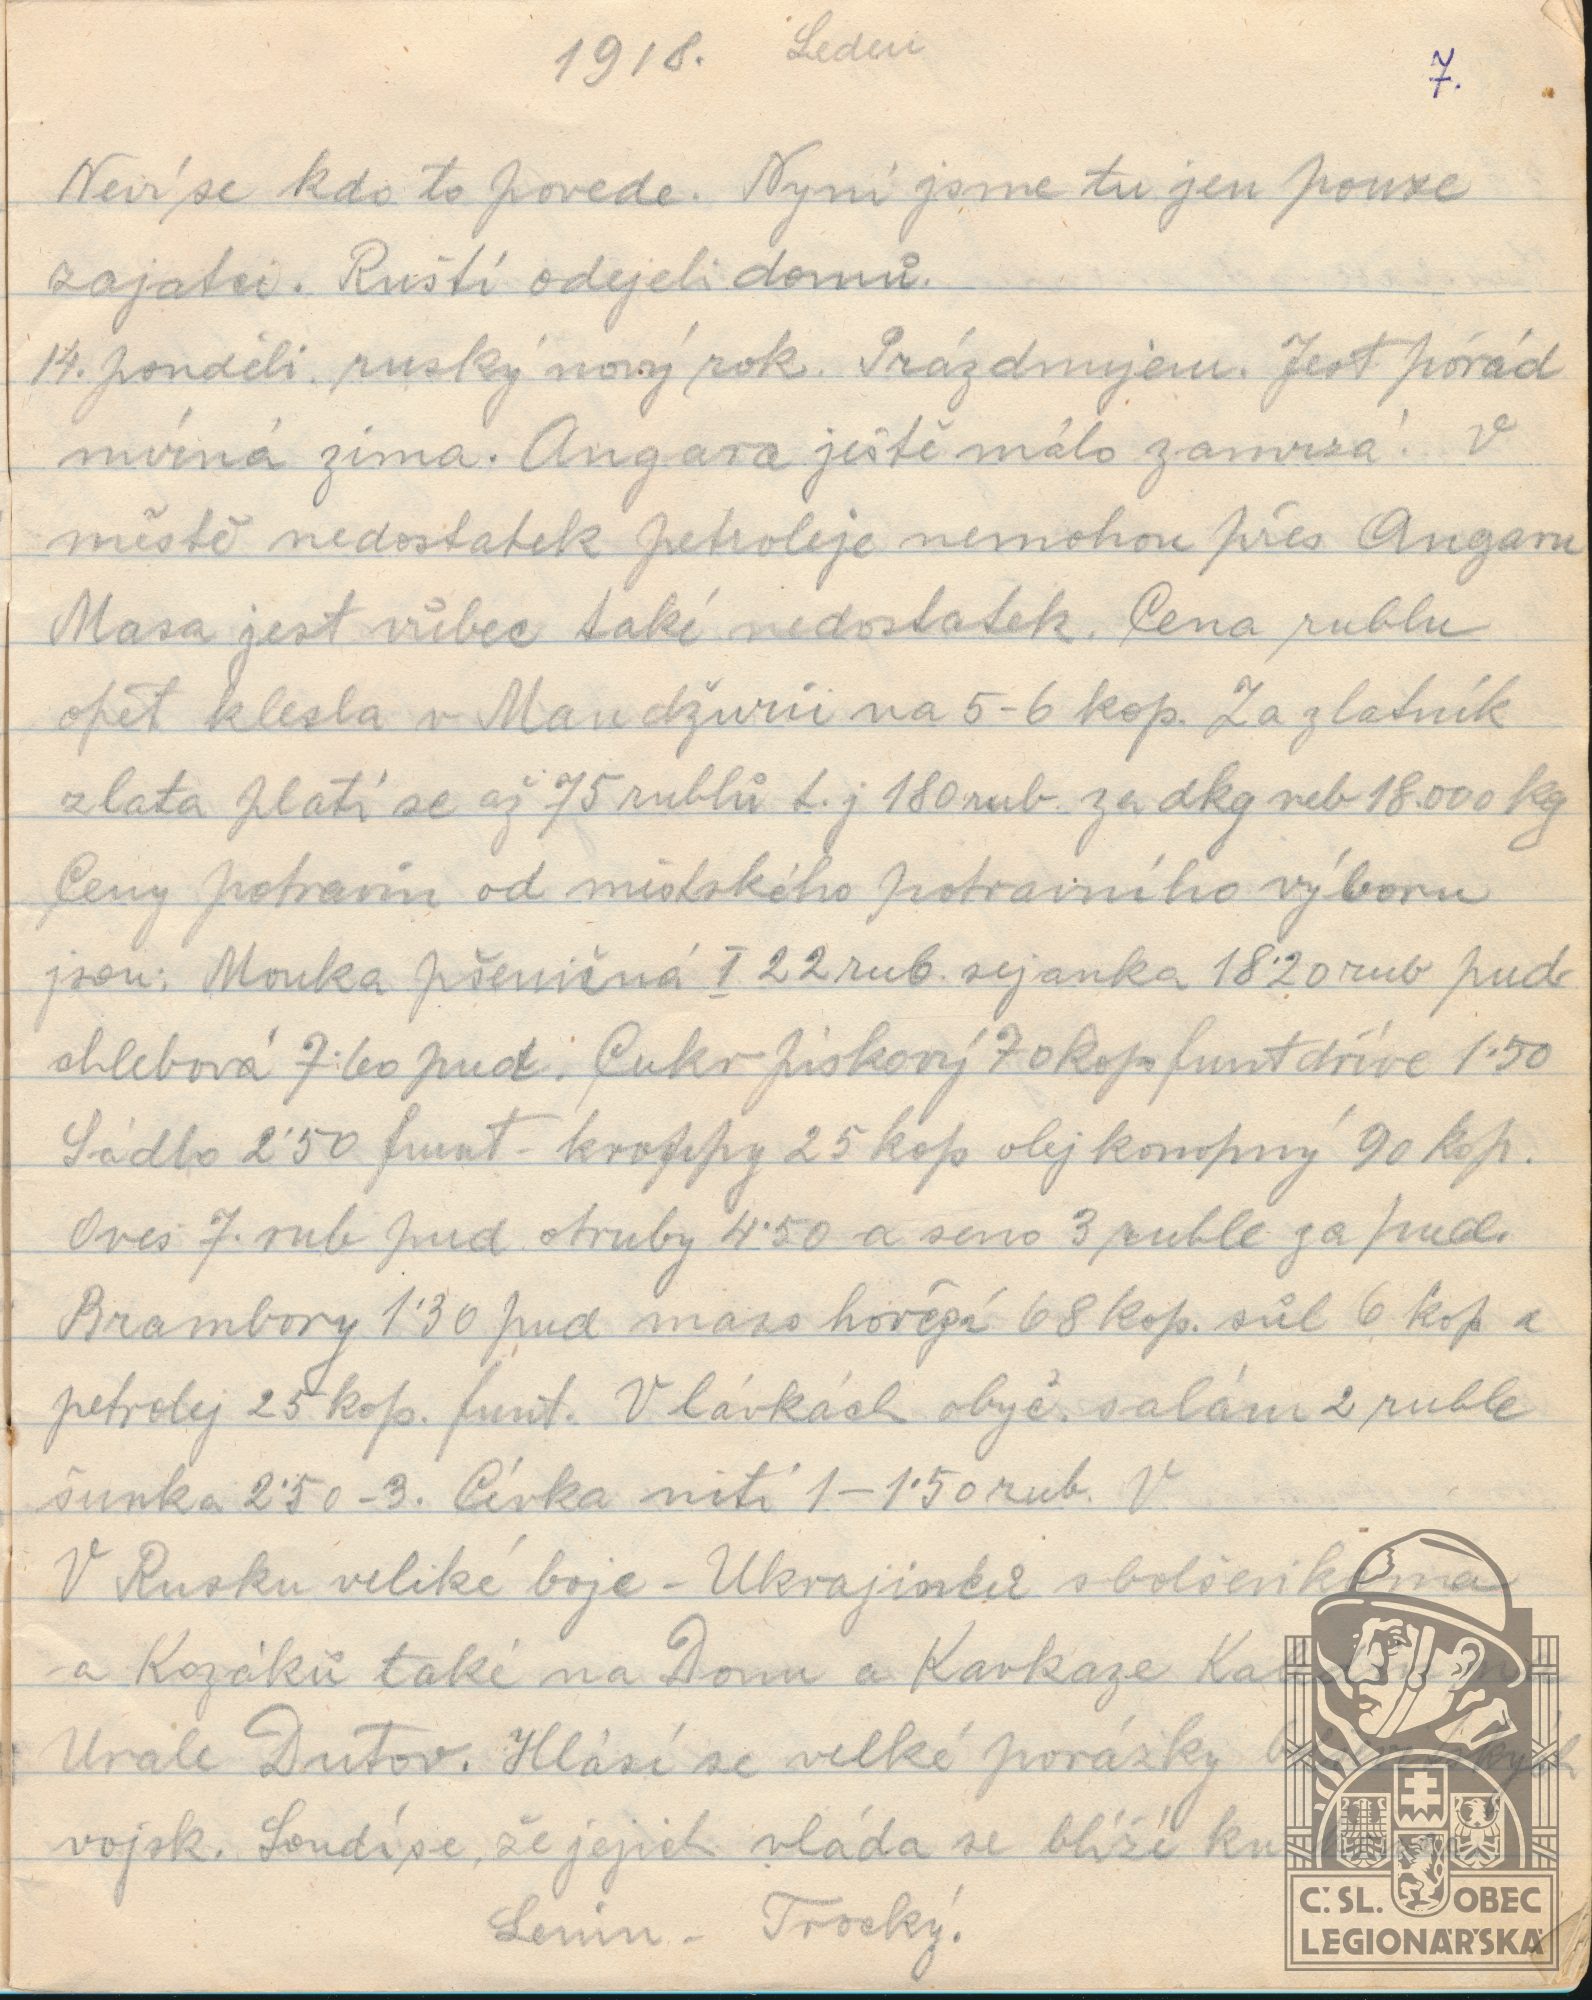 1918. Leden
7.
Neví se kdo to povede. Nyní jsme tu jen pouze
zajatci. Ruští odejeli domů.
14. pondělí. ruský nový rok. Prázdnujem. Jest pórád
mírná zima. Angara ještě málo zamrzá. V
městě nedostatek petroleje nemohou přes Angaru
Masa jest vůbec také nedostatek. Cena rublu
opět klesla v Mandžurii na 5-6 kop. Za zlatník
zlata platí se až 75 rublů t.j 180 rub. za dkg neb 18.000 kg
Ceny potravin od městského potravního výboru
jsou: Mouka pšeničná I 22 rub. sejanka 18'20 rub pud
chlebová 7'60 pud. Cukr pískový 70 kop funt dříve 1'50
Sádlo 2'50 funt - krouppy 25 kop olej konopný 90 kop.
Oves 7. rub pud otruby 4'50 a seno 3 ruble za pud.
Brambory 1'30 pud maso hovězí 68 kop. sůl 6 kop a
petrolej 25 kop. funt. V lávkách obyč. salám 2 ruble
šunka 2'50-3. Cívka nití 1-1'50 rub. V
V Rusku veliké boje - Ukrajinců s bolševikama
a Kozáků také na Donu a Kavkaze
Urale Dutov. Hlásí se velké porážky
vojsk. Soudí se, že jejich vláda se blíží ku
Lenin - Trocký.
Č. SL. OBEC
LEGIONÁŘSKÁ